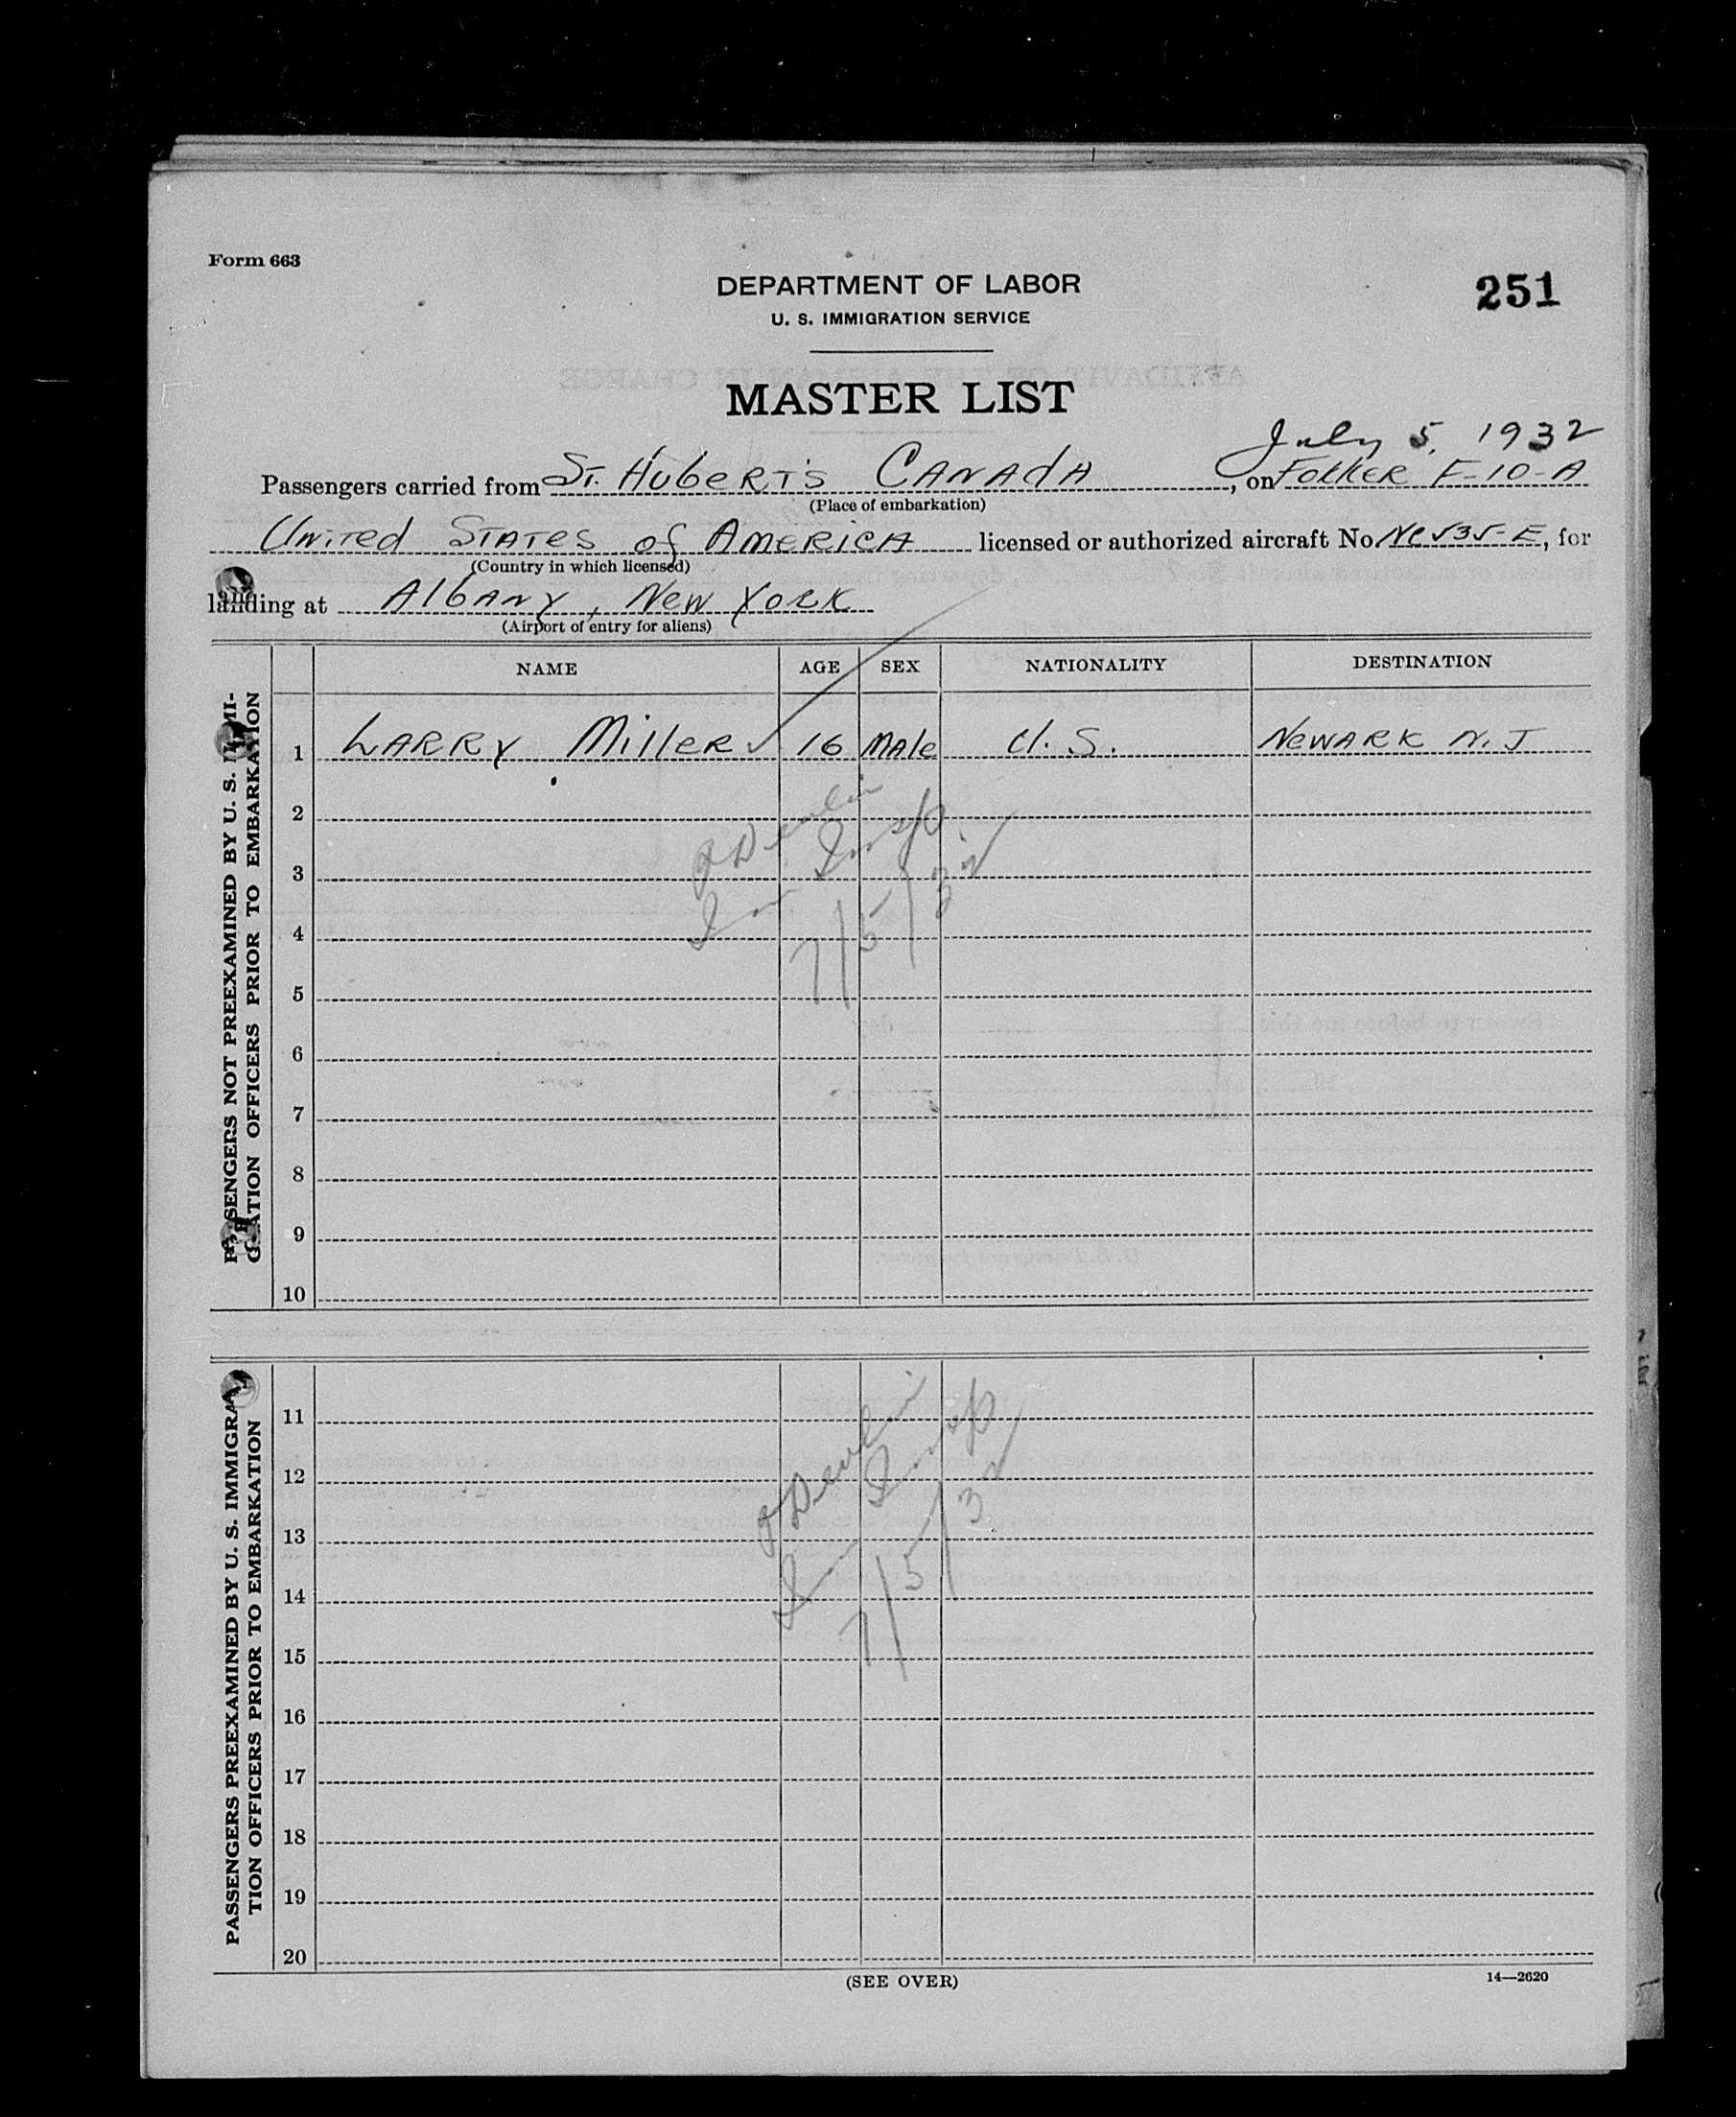 Form 663
DEPARTMENT OF LABOR
251
U. S. IMMIGRATION SERVICE
MASTER LIST
July 5, 1932
Passengers carried from St. Huberts Canada, on Fokker F-10-A
(Place of embarkation)
United States of America licensed or authorized aircraft No. , for
(Country in which licensed)
landing at Albany, New York
(Airport of entry for aliens)
NAME AGE SEX NATIONALITY DESTINATION
PASSENGERS NOT PREEXAMINED BY U. S. IMMI-
GRATION OFFICERS PRIOR TO EMBARKATION
1 Larry Miller ✓ 16 Male U.S. Newark N.J
2
3
4
5
6
7
8
9
10
Devlin
Imm Insp
7/5/32
PASSENGERS PREEXAMINED BY U. S. IMMIGRA-
TION OFFICERS PRIOR TO EMBARKATION
11
12
13
14
15
16
17
18
19
20
Devlin
Imm Insp
7/5/32
(SEE OVER)
14—2620